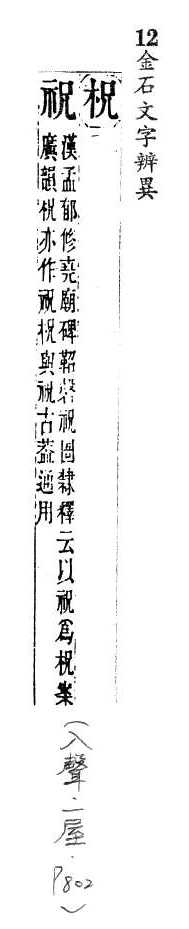 12金石文字辨異
柷
祝
漢孟郁修堯廟碑鞀磬祝圄隸釋云以祝爲柷案
廣韻柷亦作祝柷與祝古葢通用
(入聲.一屋.P802)